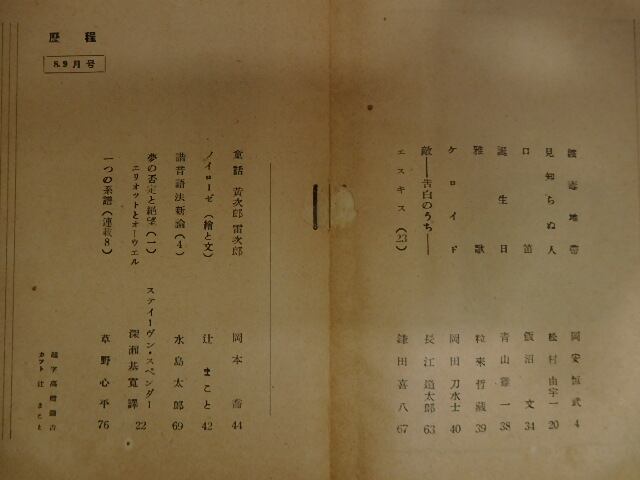 歴程
8.9月号
渡毒地帯 岡安恒武 4
見知らぬ人 松村由宇一 20
口笛 飯沼文 34
誕生日 青山雞一 38
雅歌 粒来哲蔵 39
ケロイド 岡田刀水士 40
敵——告白のうち—— 長江道太郎 63
エスキス（23） 鎌田喜八 67
童話 黄次郎 雷次郎 岡本喬 44
ノイローゼ（繪と文） 辻まこと 42
諧音語法新論（4） 水島太郎 69
夢の否定と絶望（一） スティーヴン・スペンダー
エリオットとオーウエル 深瀬基寛譯 22
一つの系譜（連載8） 草野心平 76
カツト 辻まこと